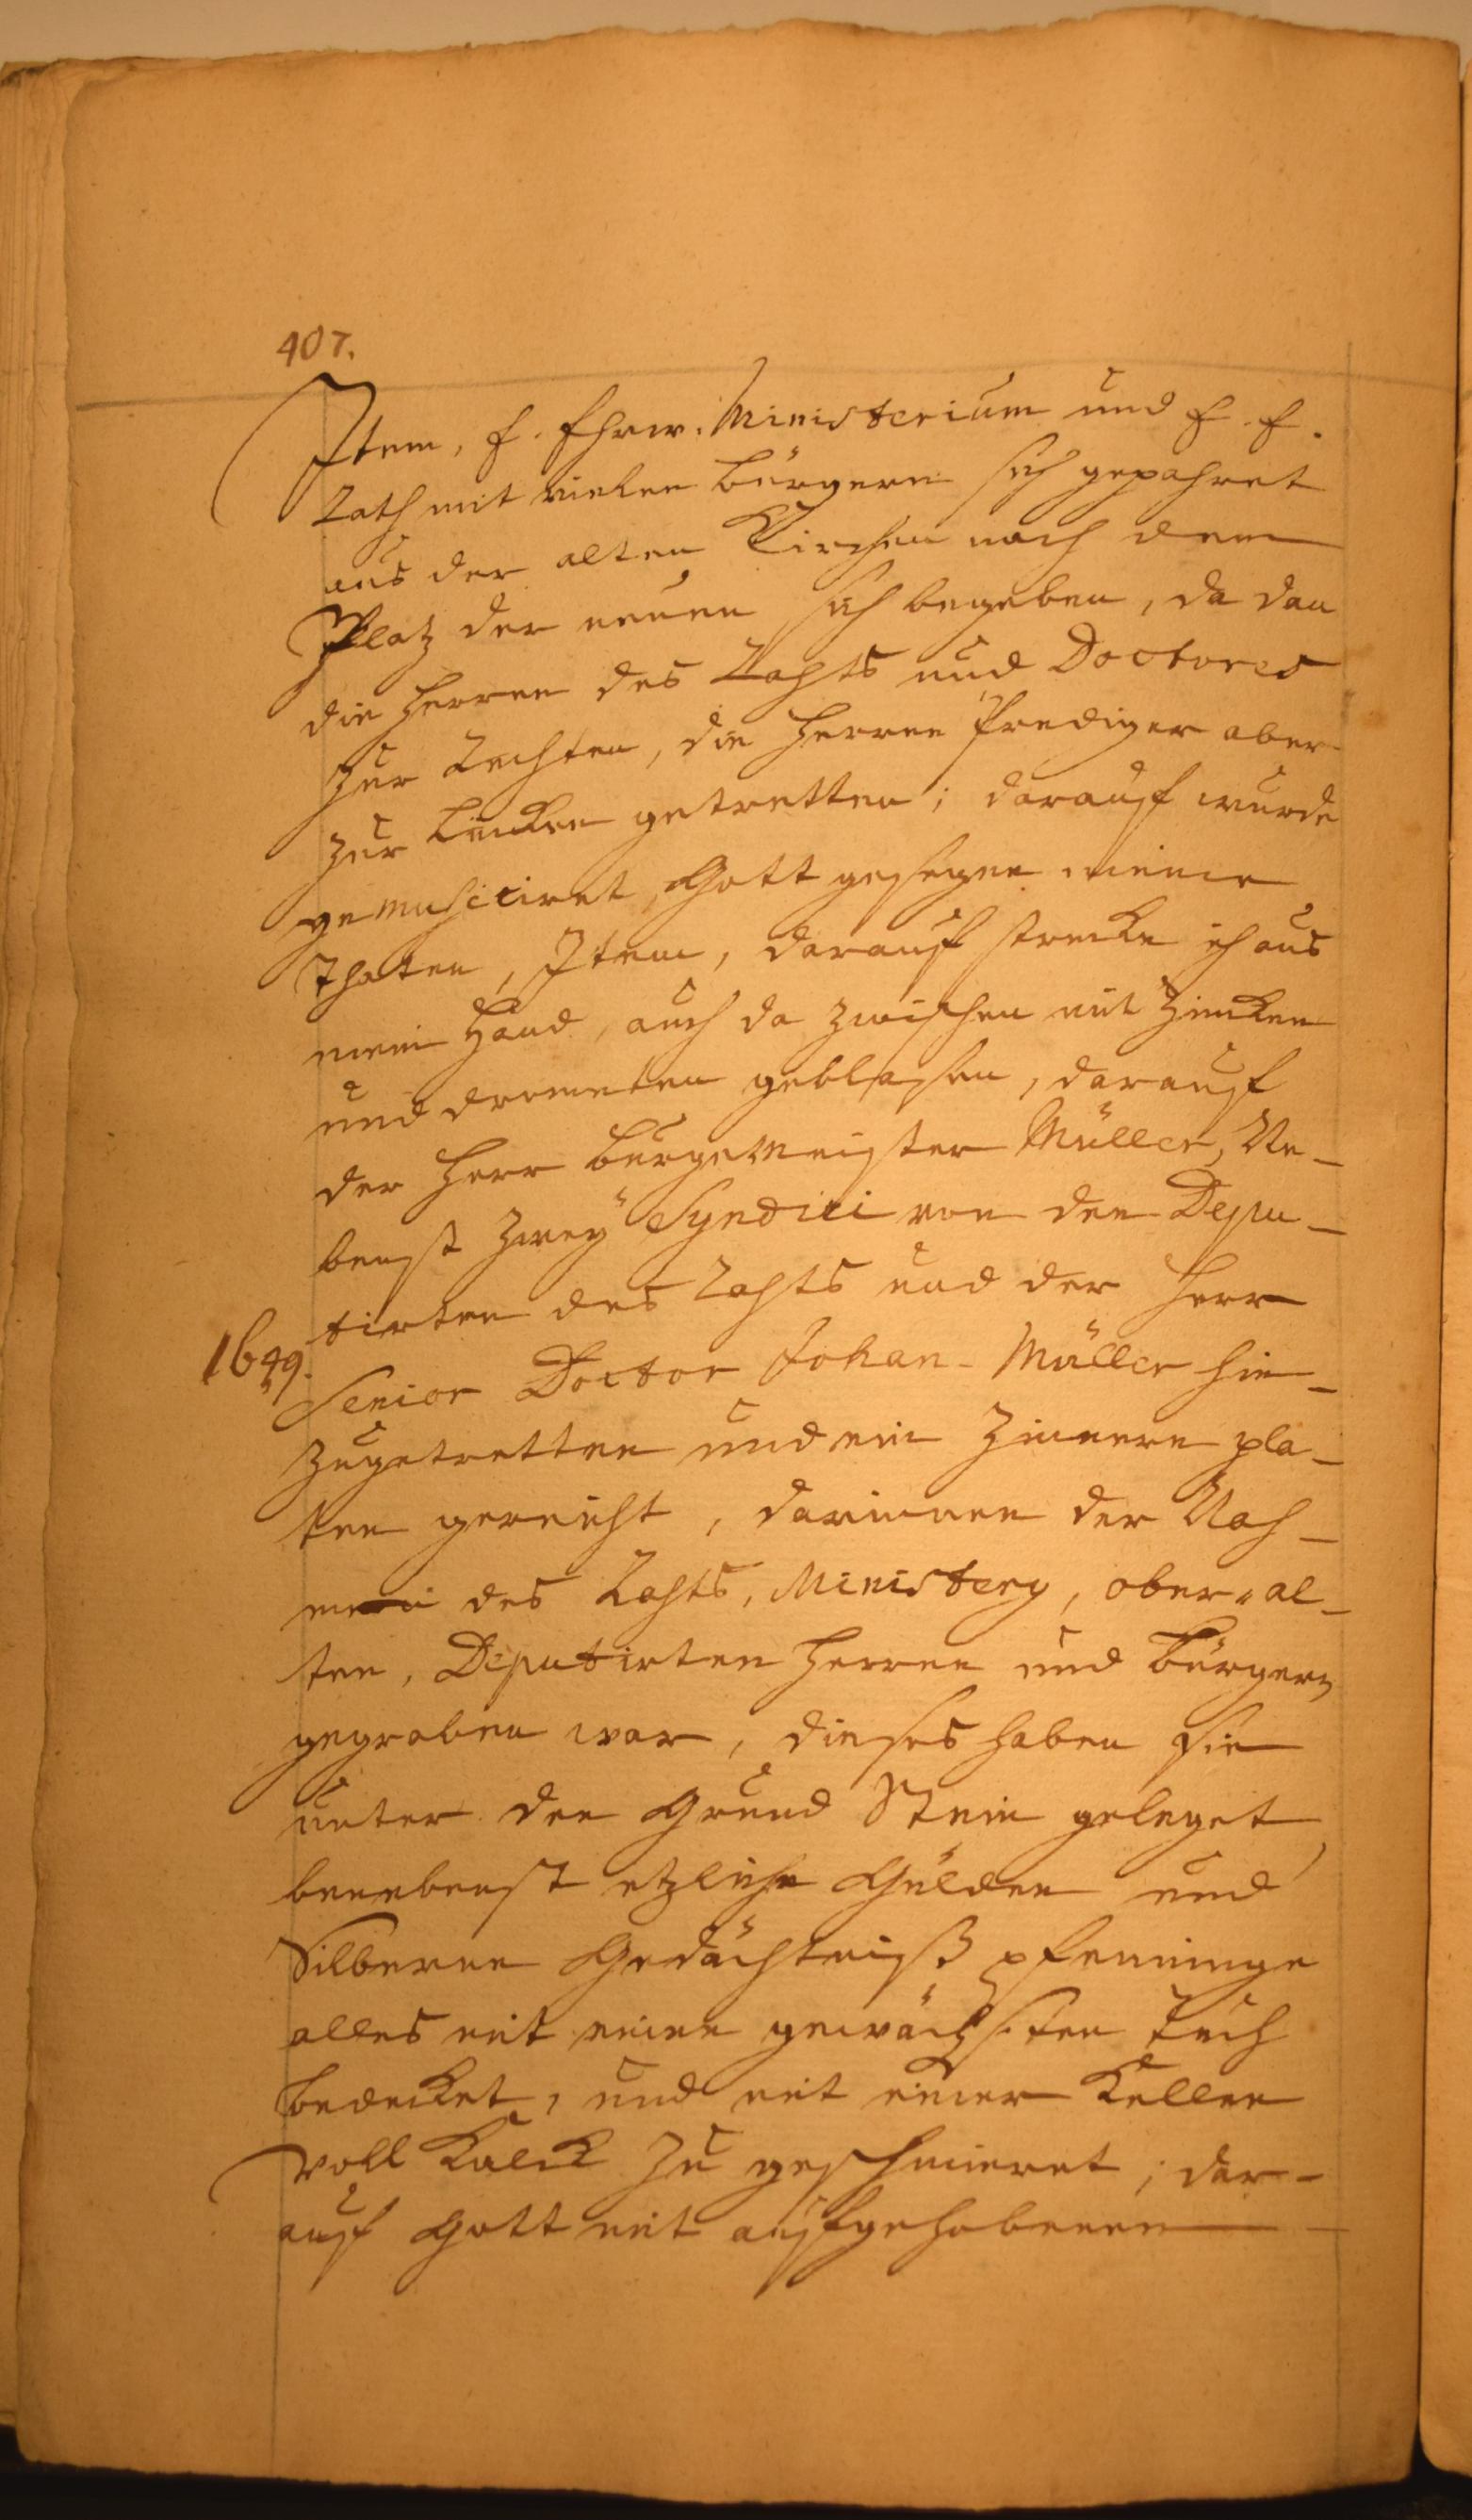 407.
Item, E. Ehrw. Ministerium und E. E.
Rath mit vielen bürgern sich gepahret
aus der alten Kirchen nach dem
Platz der neuen sich begeben, da dan
die Herren des Rahts und Doctores
zur Rechten, die Herren Prediger aber
zur Lincken getretten; darauf wurde
gemusiciret, Gott gesegne meine
thaten, Item, darauf strecke ich aus
mein Hand, auch da zwischen mit Zincken
und drometen geblasen, darauf
der Herr bürgemeister Müller, Ne-
benst zwey Syndici von den Depu-
tirten des Rahts und der Herr
1649.
Senior Doctor Johan- Müller hin-
zugetretten und ein Zinnern pla-
ten gereicht, darinnen der Nah-
men des Rahts, Ministery, ober-al-
ten, Deputirten Herren und bürgern
gegraben war, dieses haben sie
unter den Grund Stein geleget,
benebenst etzliche Gülden und
Silberne Gedächtniß pfenninge
alles mit einen gewächsten Tuch
bedecket, und mit einer Kellen
voll Kalck zu geschmieret; dar-
auf Gott mit aufgehobenen